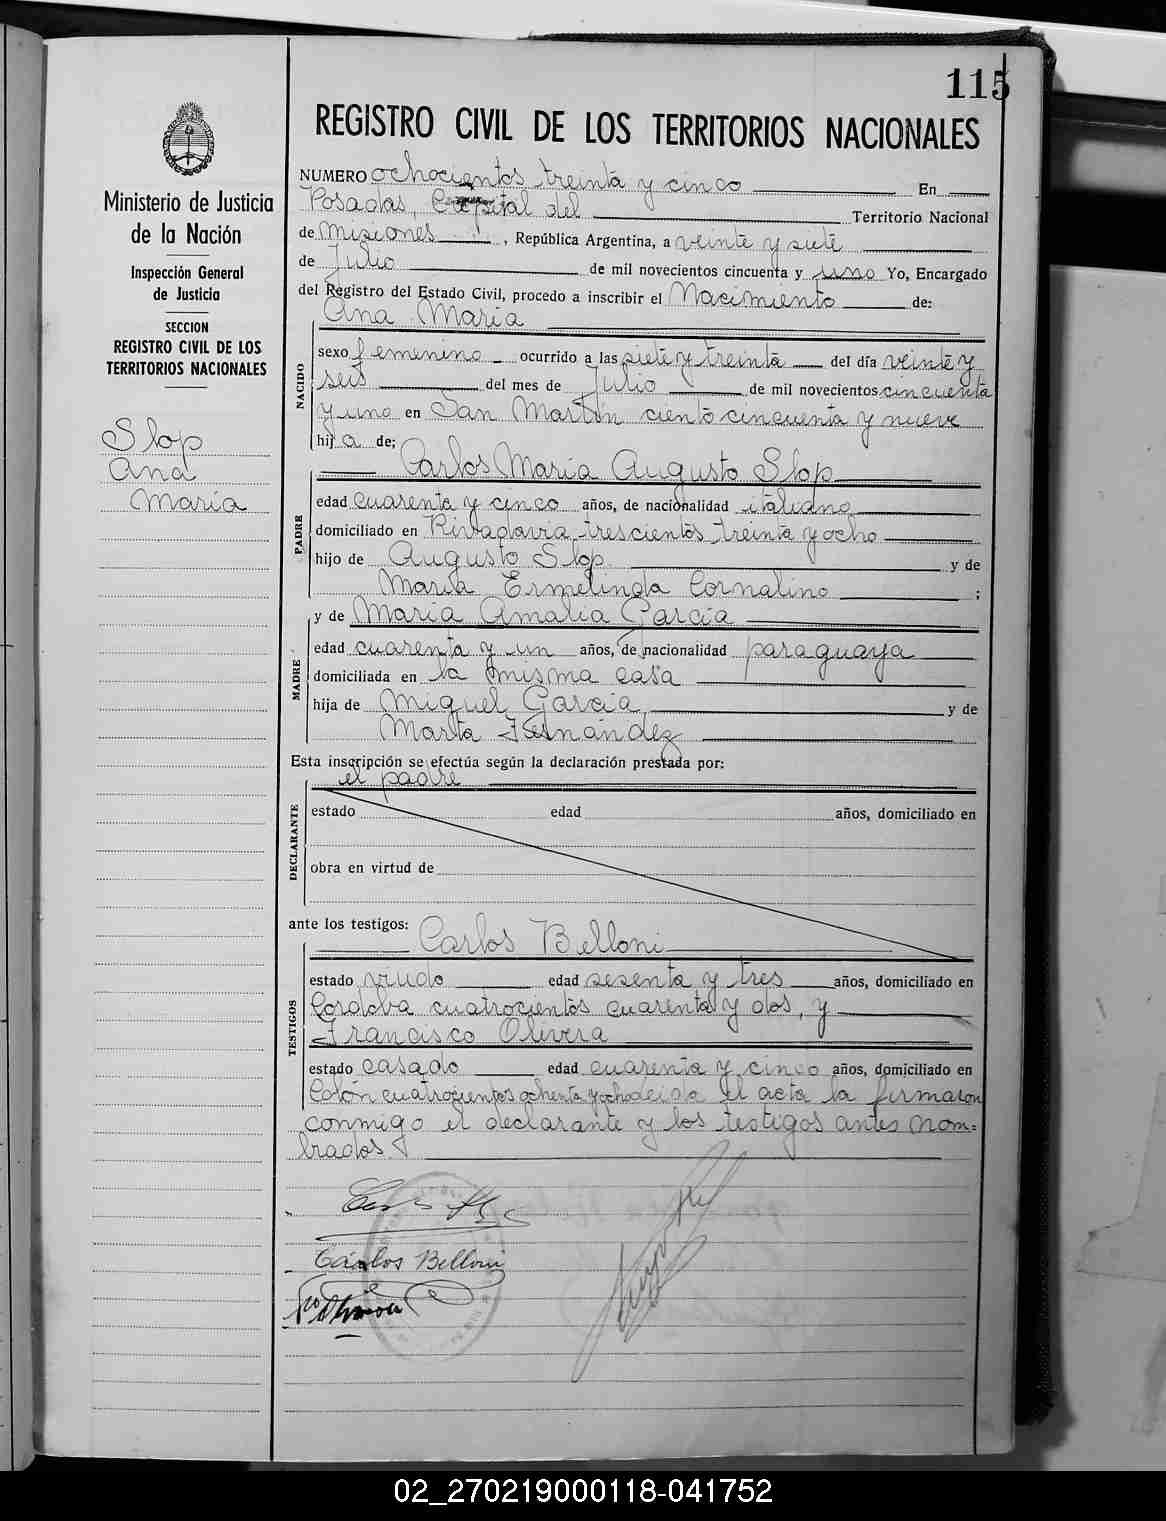 115
REGISTRO CIVIL DE LOS TERRITORIOS NACIONALES
Ministerio de Justicia
de la Nación
Inspección General
de Justicia
SECCION
REGISTRO CIVIL DE LOS
TERRITORIOS NACIONALES
Slop
Ana
María
NUMERO ochocientos treinta y cinco En
Posadas, Capital del Territorio Nacional
de Misiones, República Argentina, a veinte y siete
de Julio de mil novecientos cincuenta y uno Yo, Encargado
del Registro del Estado Civil, procedo a inscribir el Nacimiento de:
Ana María
NACIDO
sexo femenino ocurrido a las siete y treinta del día veinte y
seis del mes de Julio de mil novecientos cincuenta
y uno en San Martín ciento cincuenta y nueve
hija de;
Carlos María Augusto Slop
PADRE
edad cuarenta y cinco años, de nacionalidad italiano
domiciliado en Rivadavia trescientos treinta y ocho
hijo de Augusto Slop y de
María Ermelinda Cornalino ;
y de María Amalia García
MADRE
edad cuarenta y un años, de nacionalidad paraguaya
domiciliada en la misma casa
hija de Miguel García y de
Marta Fernández
Esta inscripción se efectúa según la declaración prestada por:
el padre
DECLARANTE
estado edad años, domiciliado en
obra en virtud de
ante los testigos:
Carlos Belloni
TESTIGOS
estado viudo edad sesenta y tres años, domiciliado en
Cordoba cuatrocientos cuarenta y dos, y
Francisco Olivera
estado casado edad cuarenta y cinco años, domiciliado en
Colón cuatrocientos ochenta y ocho leida el acta la firmaron
conmigo el declarante y los testigos antes nom=
brados.
Carlos Belloni
02_270219000118-041752